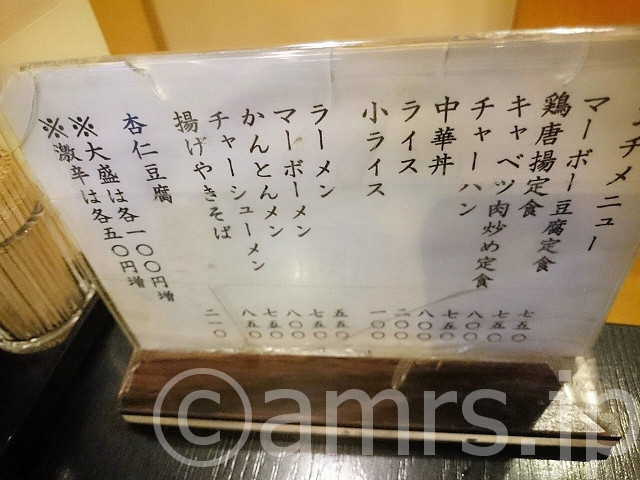 チメニュー
マーボー豆腐定食 七五〇
鶏唐揚定食 七五〇
キャベツ肉炒め定食 八〇〇
チャーハン 七五〇
中華丼 八〇〇
ライス 二〇〇
小ライス 一〇〇
ラーメン 五五〇
マーボーメン 七五〇
かんとんメン 八〇〇
チャーシューメン 七五〇
揚げやきそば 八五〇
杏仁豆腐 二一〇
※大盛は各一〇〇円増
※激辛は各五〇円増
©amrs.jp